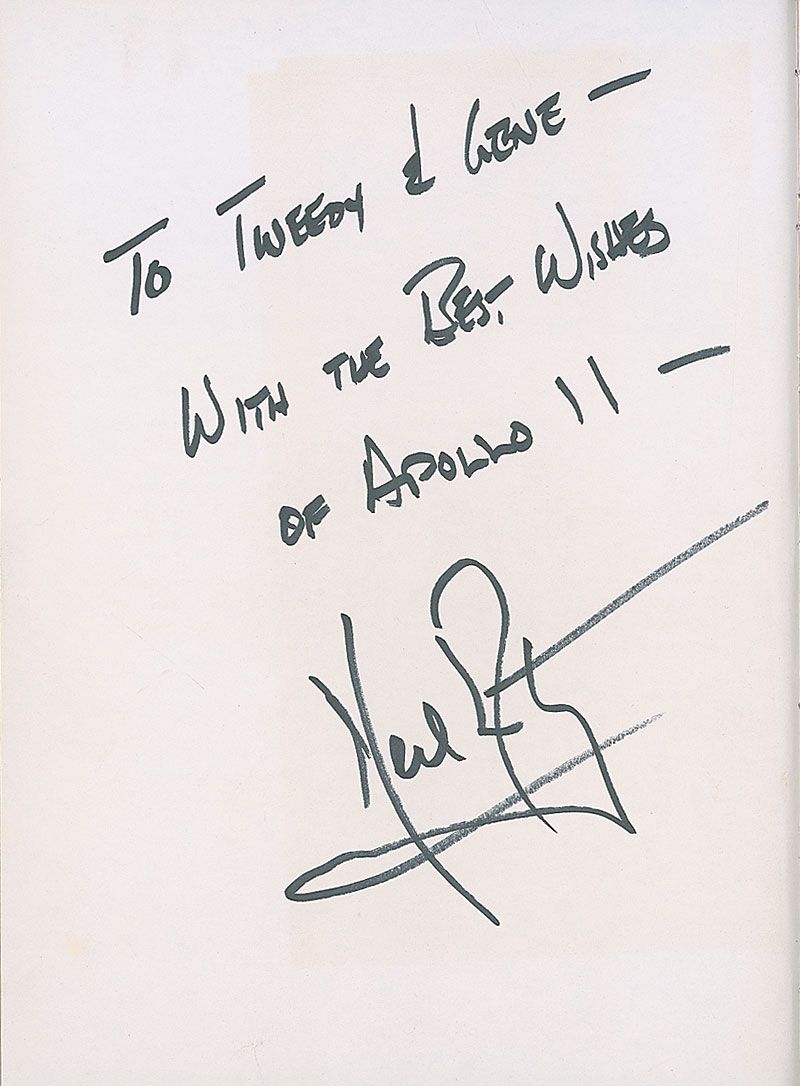 To TWEEDY & GENE —
WITH THE BEST WISHES
OF APOLLO 11 —
Neil